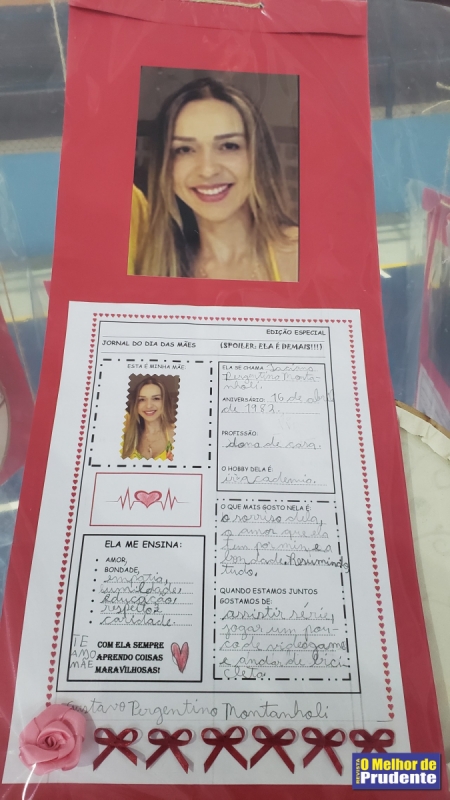 EDIÇÃO ESPECIAL
JORNAL DO DIA DAS MÃES
(SPOILER: ELA É DEMAIS!!!)
ESTA É MINHA MÃE
ELA SE CHAMA
Pergentino Monta-
nholi.
ANIVERSÁRIO: 16 de abril
de 1982.
PROFISSÃO:
dona de casa.
O HOBBY DELA É:
ir na academia.
O QUE MAIS GOSTO NELA É:
o sorriso dela,
o amor que ela
tem por mim e a
bondade. Resumindo
tudo.
QUANDO ESTAMOS JUNTOS
GOSTAMOS DE:
assistir série,
jogar um pou-
co de videogame
e andar de bici-
cleta.
ELA ME ENSINA:
AMOR,
BONDADE,
empatia,
humildade,
educação,
respeito e
caridade.
TE
AMO
MÃE
COM ELA SEMPRE
APRENDO COISAS
MARAVILHOSAS!
Gustavo Pergentino Montanholi
REVISTA
O Melhor de
Prudente